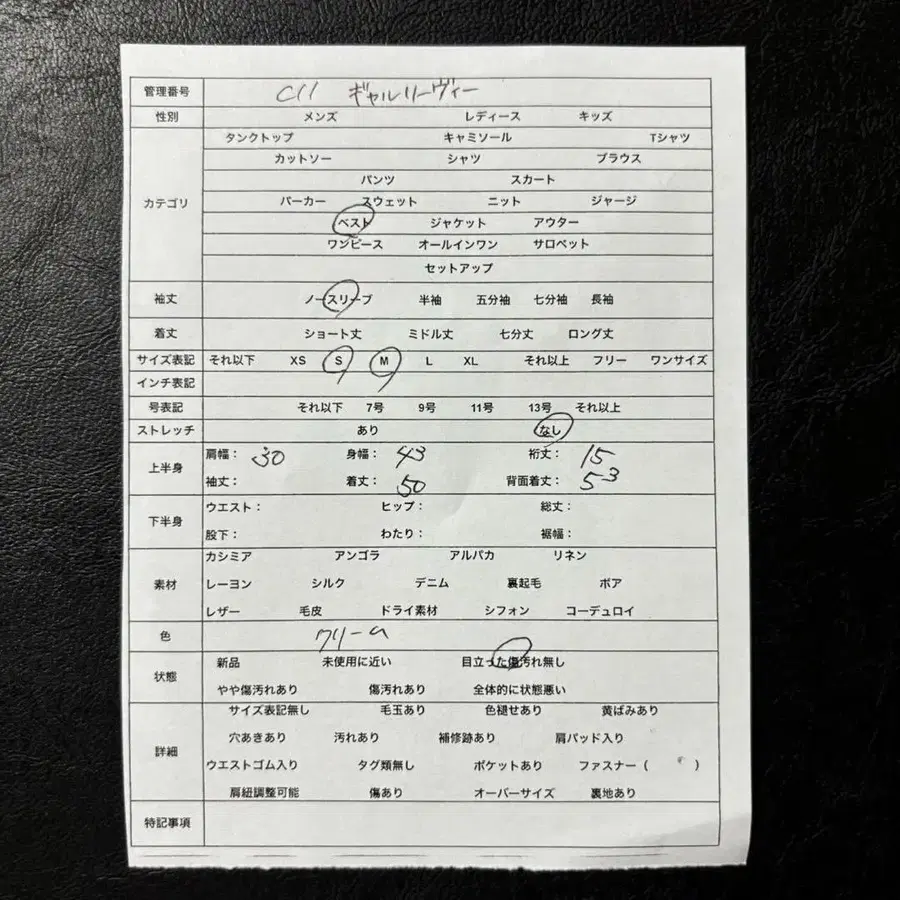 管理番号 C11 ギャルリーヴィー
性別 メンズ レディース キッズ
タンクトップ キャミソール Tシャツ
カットソー シャツ ブラウス
パンツ スカート
カテゴリ パーカー スウェット ニット ジャージ
ベスト ジャケット アウター
ワンピース オールインワン サロペット
セットアップ
袖丈 ノースリーブ 半袖 五分袖 七分袖 長袖
着丈 ショート丈 ミドル丈 七分丈 ロング丈
サイズ表記 それ以下 XS S M L XL それ以上 フリー ワンサイズ
インチ表記
号表記 それ以下 7号 9号 11号 13号 それ以上
ストレッチ あり なし
上半身 肩幅: 30 身幅: 43 裄丈: 15
袖丈: 着丈: 50 背面着丈: 53
下半身 ウエスト: ヒップ: 総丈:
股下: わたり: 裾幅:
カシミア アンゴラ アルパカ リネン
素材 レーヨン シルク デニム 裏起毛 ボア
レザー 毛皮 ドライ素材 シフォン コーデュロイ
色 クリーム
状態 新品 未使用に近い 目立った傷汚れ無し
やや傷汚れあり 傷汚れあり 全体的に状態悪い
サイズ表記無し 毛玉あり 色褪せあり 黄ばみあり
詳細 穴あきあり 汚れあり 補修跡あり 肩パッド入り
ウエストゴム入り タグ類無し ポケットあり ファスナー( )
肩紐調整可能 傷あり オーバーサイズ 裏地あり
特記事項